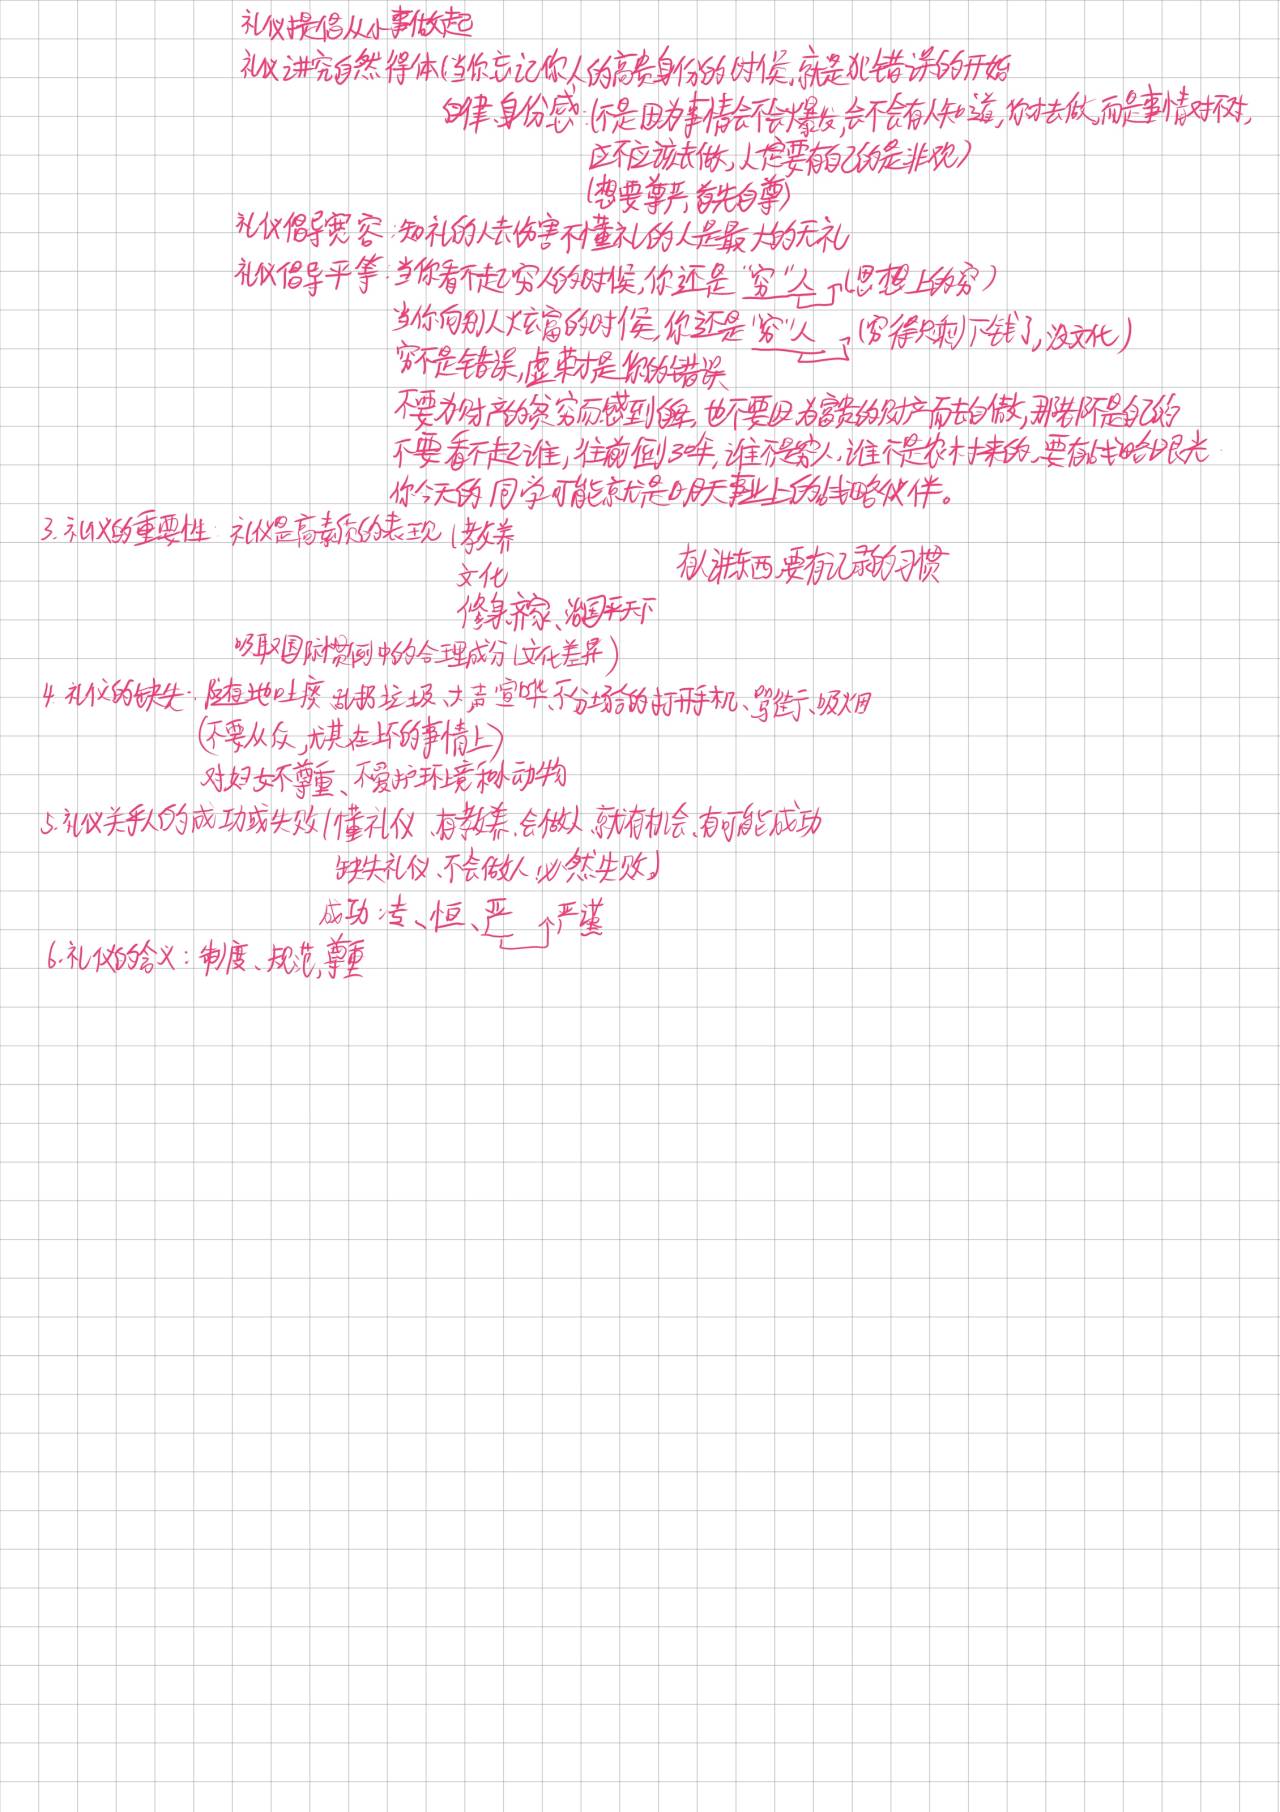 礼仪提倡从小事做起
礼仪讲究自然得体(当你忘记你人的高贵身份的时候,就是犯错误的开始
自律、身份感:(不是因为事情会不会爆发,会不会有人知道,你才去做,而是事情对不对,
应不应该去做,人一定要有自己的是非观)
(想要尊严,首先自尊)
礼仪倡导宽容:知礼的人去伤害不懂礼的人是最大的无礼
礼仪倡导平等:当你看不起穷人的时候,你还是“穷”人(思想上的穷)
当你向别人炫富的时候,你还是“穷”人(穷得只剩下钱了,没文化)
穷不是错误,虚荣才是你的错误
不要为财产的贫穷而感到自卑,也不要因为富贵的财产而去自傲,那些都不是自己的
不要看不起谁,往前倒30年,谁不是穷人,谁不是农村来的,要有战略眼光
你今天的同学可能就是明天事业上的战略伙伴。
3.礼仪的重要性:礼仪是高素质的表现(教养
文化
有人讲东西,要有记录的习惯
修身、齐家、治国平天下
吸取国际惯例中的合理成分(文化差异)
4.礼仪的缺失:随地吐痰、乱扔垃圾、大声喧哗、不分场合的打开手机、骂街、吸烟
(不要从众,尤其在坏的事情上)
对妇女不尊重、不爱护环境和小动物
5.礼仪关乎人的成功或失败(懂礼仪、有教养、会做人、就有机会、有可能成功
缺失礼仪、不会做人,必然失败。)
成功:专、恒、严 严谨
6.礼仪的含义:制度、规范,尊重